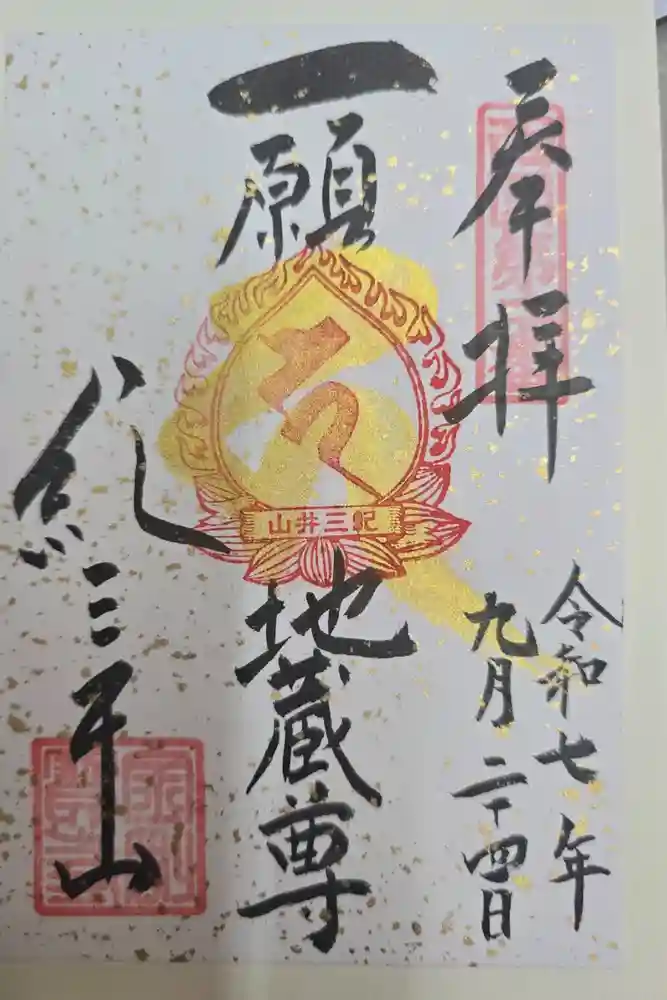 奉拝
令和七年
九月二十四日
一願
紀三井山
地蔵尊
紀三井山